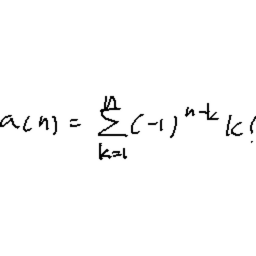 a(n) = \sum_{k=1}^{n} (-1)^{n-k} k!